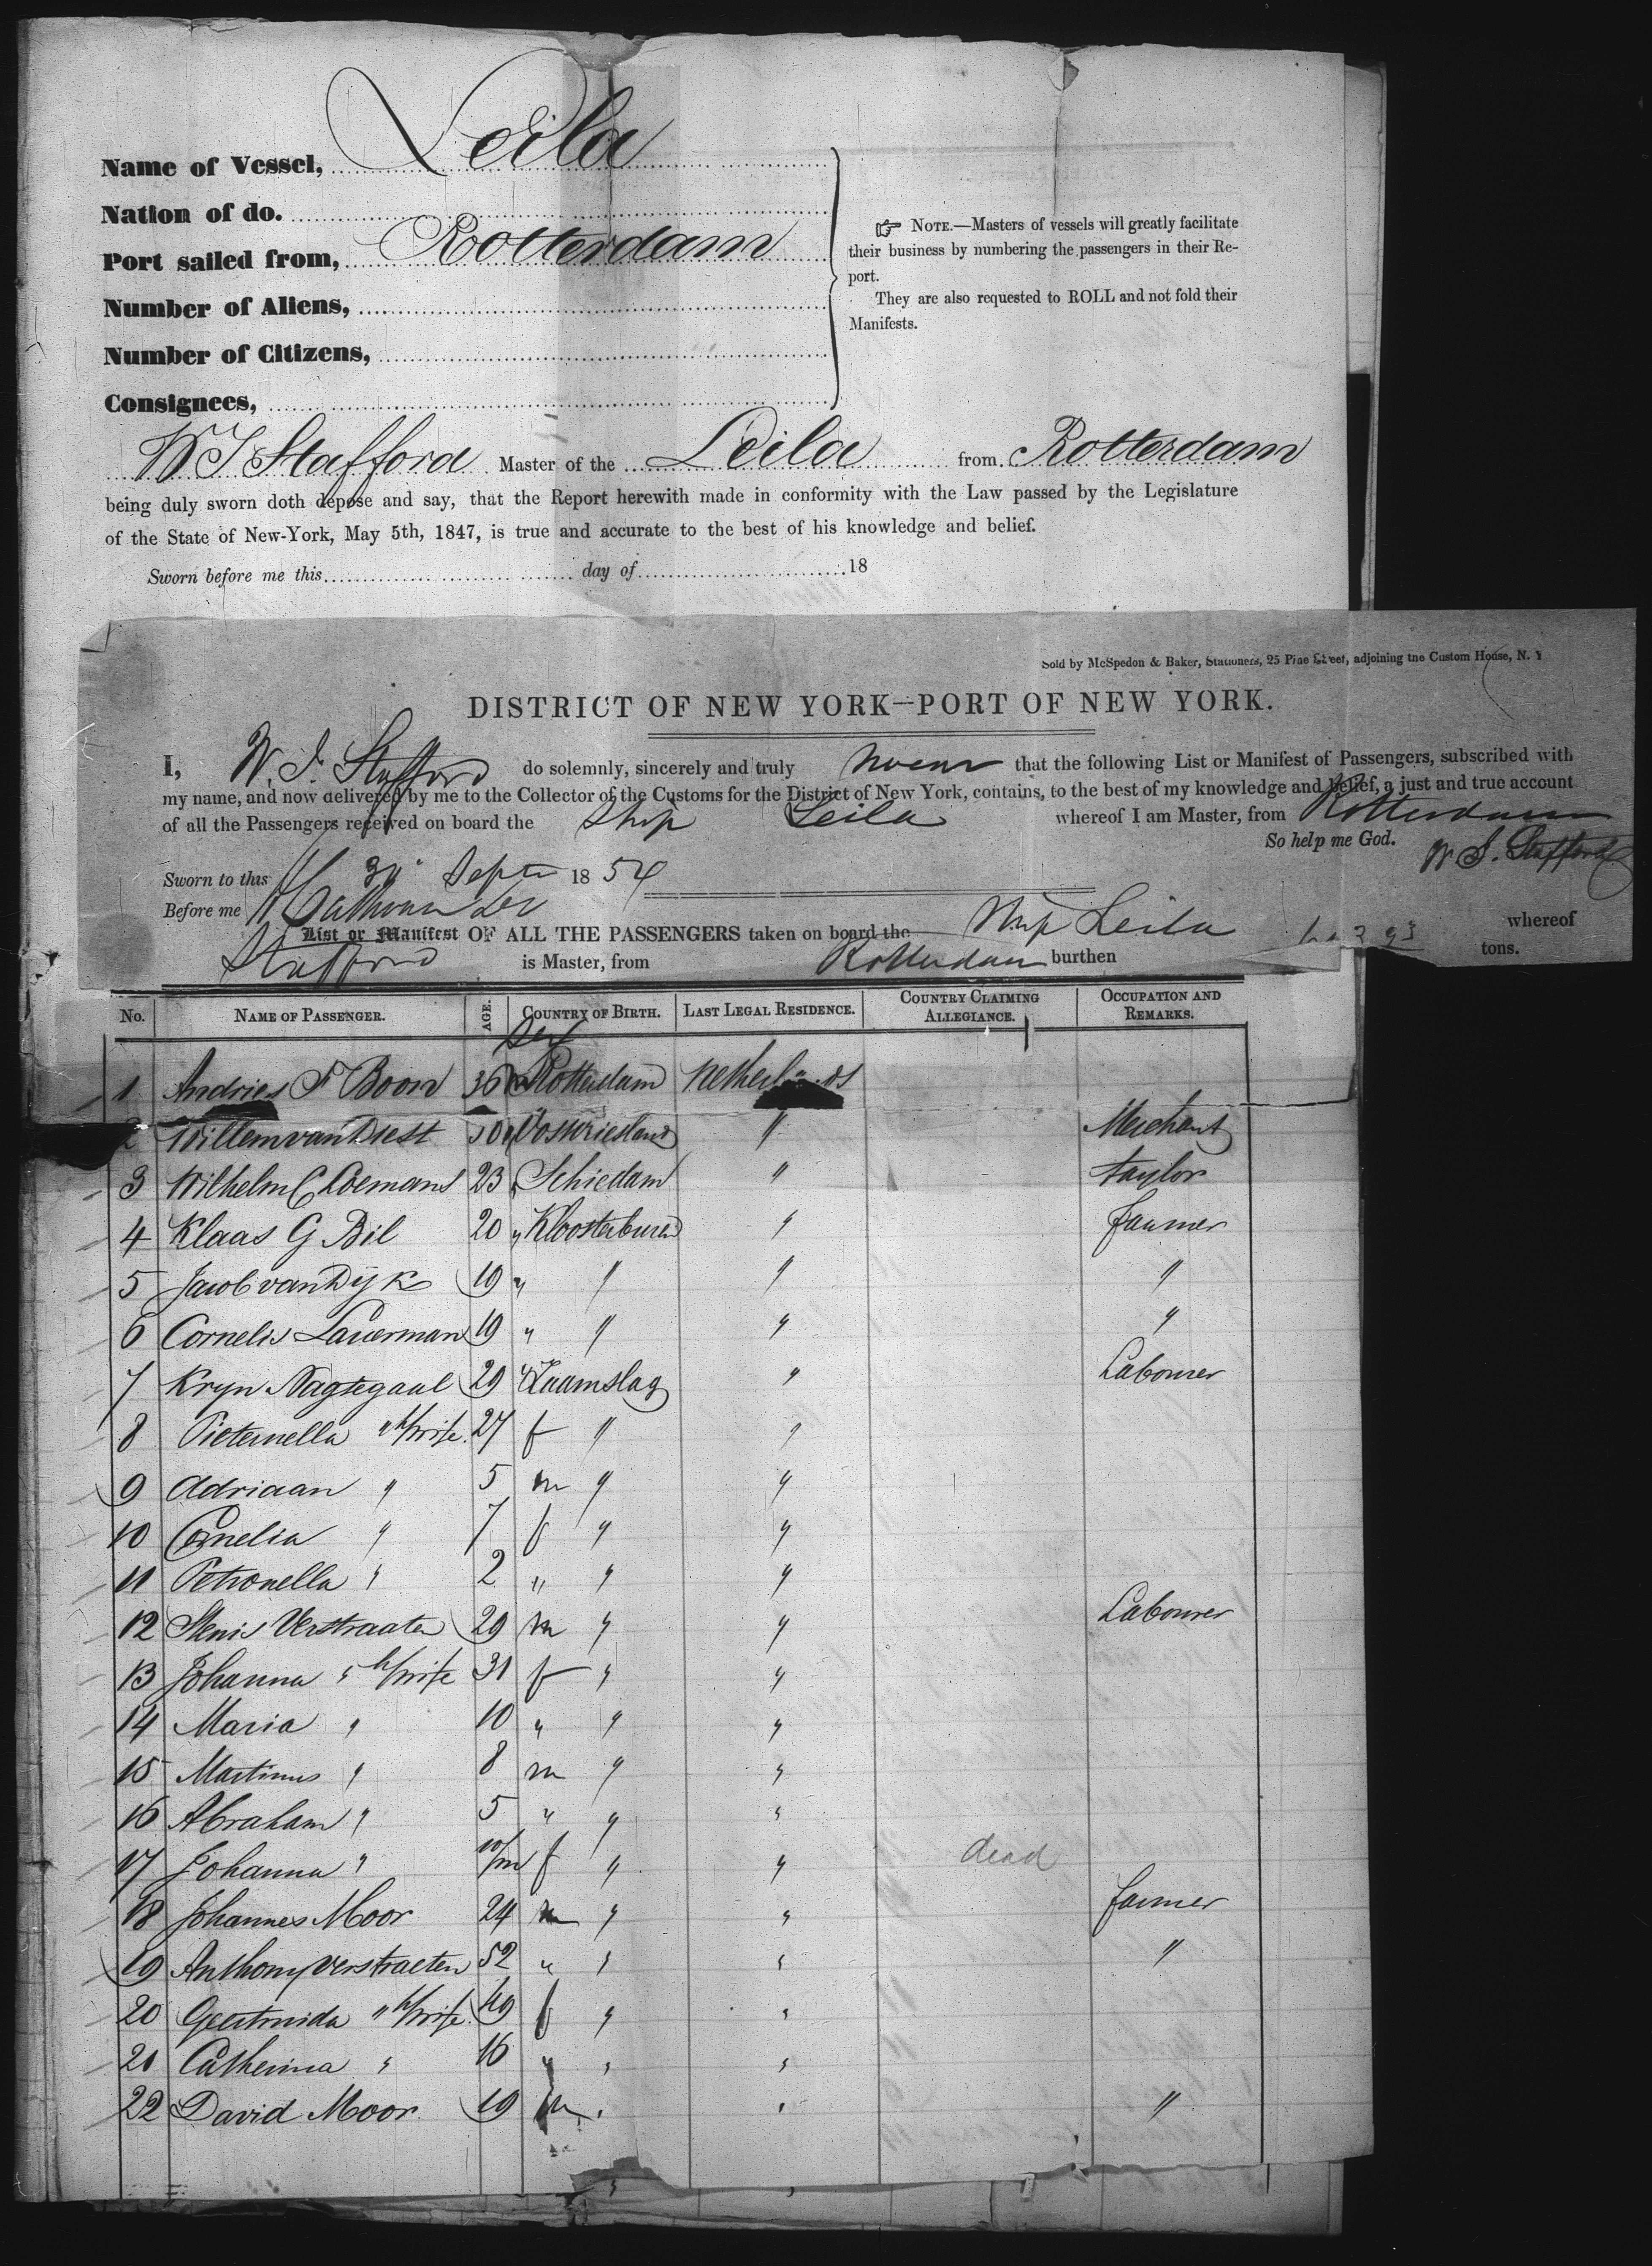 Name of Vessel, Leila
Nation of do.
Port sailed from, Rotterdam
Number of Aliens,
Number of Citizens,
Consignees,
☞ NOTE.—Masters of vessels will greatly facilitate
their business by numbering the passengers in their Re-
port.
They are also requested to ROLL and not fold their
Manifests.
W S Stafford Master of the Leila from Rotterdam
being duly sworn doth depose and say, that the Report herewith made in conformity with the Law passed by the Legislature
of the State of New-York, May 5th, 1847, is true and accurate to the best of his knowledge and belief.
Sworn before me this day of 18
Sold by McSpedon & Baker, Stationers, 25 Pine Street, adjoining the Custom House, N. Y
DISTRICT OF NEW YORK—PORT OF NEW YORK.
I, W. S. Stafford do solemnly, sincerely and truly swear that the following List or Manifest of Passengers, subscribed with
my name, and now delivered by me to the Collector of the Customs for the District of New York, contains, to the best of my knowledge and belief, a just and true account
of all the Passengers received on board the Ship Leila whereof I am Master, from Rotterdam
So help me God. W S. Stafford
Sworn to this 30 Septr 1854
Before me
List or Manifest OF ALL THE PASSENGERS taken on board the Ship Leila whereof
Stafford is Master, from Rotterdam burthen tons.
No. NAME OF PASSENGER. AGE. COUNTRY OF BIRTH. LAST LEGAL RESIDENCE. COUNTRY CLAIMING ALLEGIANCE. OCCUPATION AND REMARKS.
Sex
1 Andries F Boon 36 m Rotterdam Netherlands
2 Willem van Driest " " Merchant
3 Wilhelm C Coemans 23 " Schiedam " taylor
4 Klaas G Bil 20 " Kloosterburen " farmer
5 Jacob van Dijk 19 " " " "
6 Cornelis Lauerman 19 " " " "
7 Kryn Nagtegaal 29 " Zaamslag " Labourer
8 Pieternella " h/wife 27 f " "
9 Adriaan " 5 m " "
10 Cornelia " 7 f " "
11 Petronella " 2 " " "
12 Verstraaten 29 m " " Labourer
13 Johanna " h/wife 31 f " "
14 Maria " 10 " " "
15 Martinus " 8 m " "
16 Abraham " 5 " " "
17 Johanna " 10/m f " " dead
18 Johannes Moor 24 m " " farmer
19 Anthony Verstraeten 52 " " " "
20 Geertruida " h/wife 49 f " "
21 Catherina " 16 " " "
22 David Moor 19 m " " "